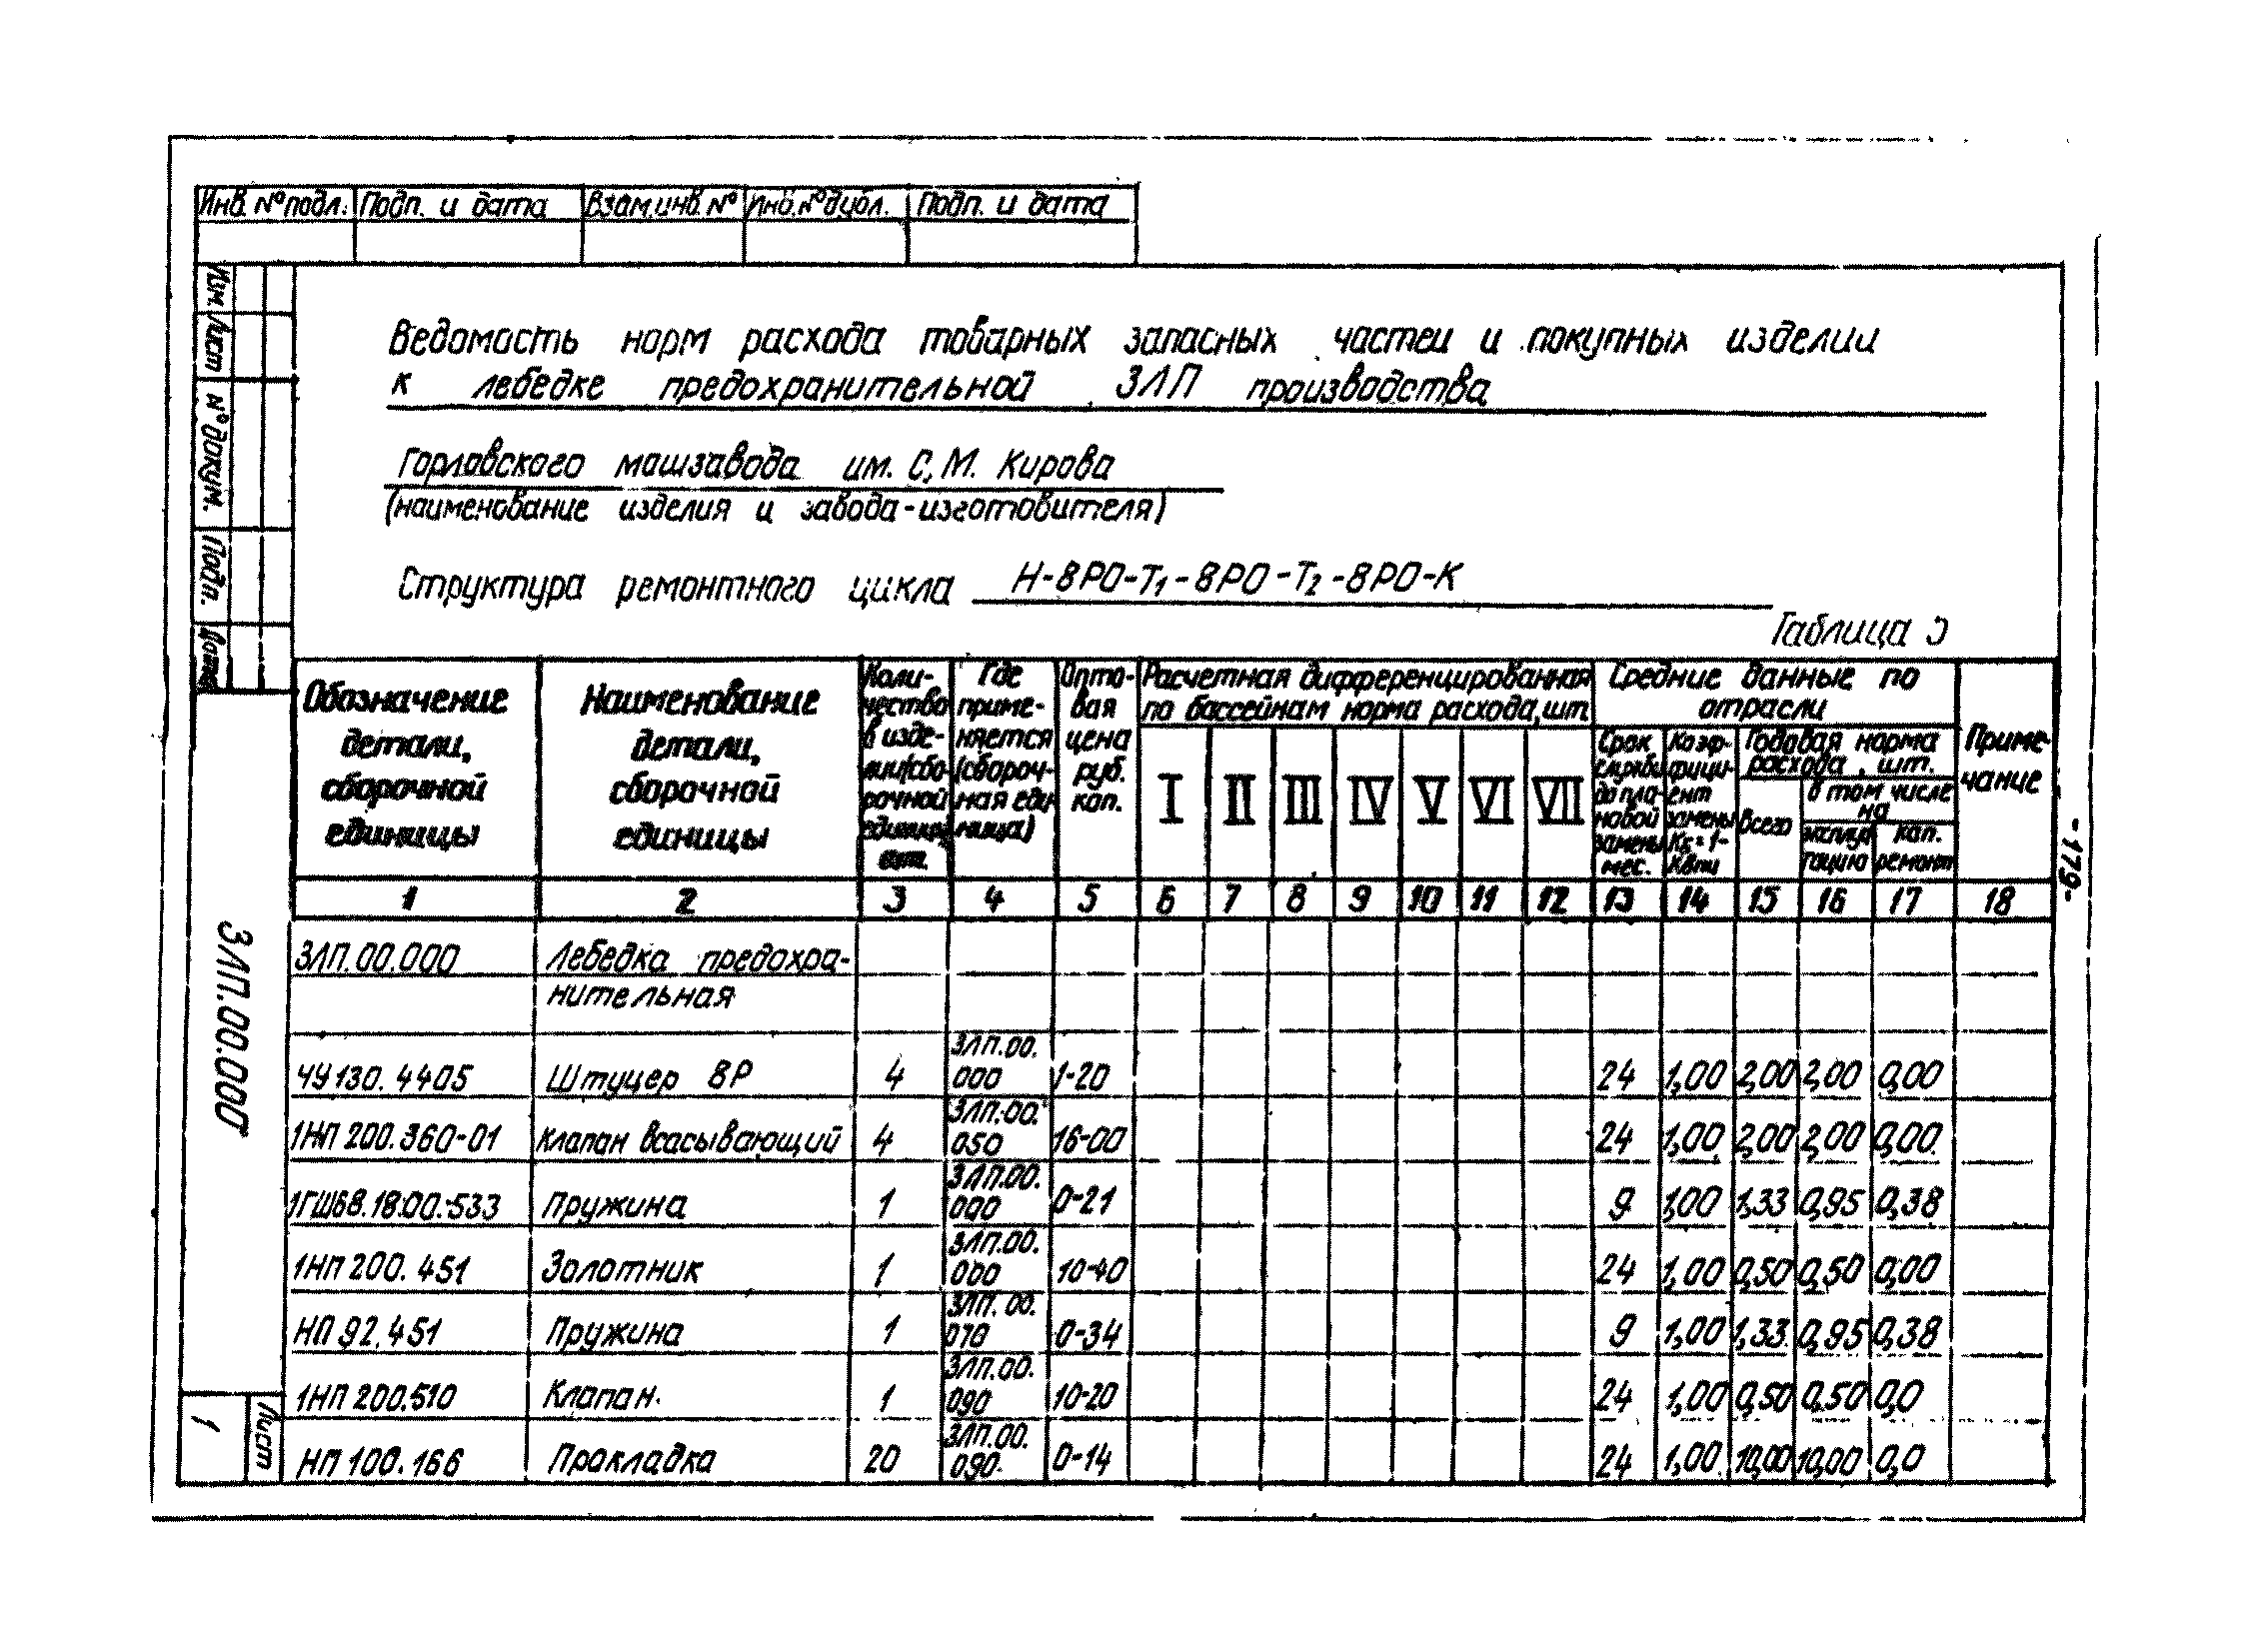 Инв. № подл. Подп. и дата Взам.инв. № Инв. № дубл. Подп. и дата
Изм. Лист № докум. Подп. Дата
Ведомость норм расхода товарных запасных частей и покупных изделий
к лебедке предохранительной 3ЛП производства
Горлавского машзавода им. С.М. Кирова
(наименование изделия и завода-изготовителя)
Структура ремонтного цикла Н-8РО-Т1-8РО-Т2-8РО-К
Таблица
Обозначение детали, сборочной единицы
Наименование детали, сборочной единицы
Количество в изделии/сборочной единице шт.
Где применяется (сборочная единица)
Оптовая цена руб. коп.
Расчетная дифференцированная по бассейнам норма расхода, шт.
I II III IV V VI VII
Средние данные по отрасли
Срок службы до плановой замены мес.
Коэффициент замены
Годовая норма расхода, шт.
Всего
в том числе на
эксплуатацию
кап. ремонт
Примечание
1 2 3 4 5 6 7 8 9 10 11 12 13 14 15 16 17 18
3ЛП.00.000 Лебедка предохра-
нительная
ЧУ130.4405 Штуцер 8Р 4 3ЛП.00.000 1-20 24 1,00 2,00 2,00 0,00
1НП 200.360-01 Клапан всасывающий 4 3ЛП.00.050 16-00 24 1,00 2,00 2,00 0,00
1ГШ68.18.00.-533 Пружина 1 3ЛП.00.000 0-21 9 1,00 1,33 0,95 0,38
1НП 200.451 Золотник 1 3ЛП.00.000 10-40 24 1,00 0,50 0,50 0,00
НП 92.451 Пружина 1 3ЛП.00.070 0-34 9 1,00 1,33 0,95 0,38
1НП 200.510 Клапан 1 3ЛП.00.090 10-20 24 1,00 0,50 0,50 0,0
НП 100.166 Прокладка 20 3ЛП.00.090 0-14 24 1,00 10,00 10,00 0,0
3ЛП.00.000
Лист 1
-179-